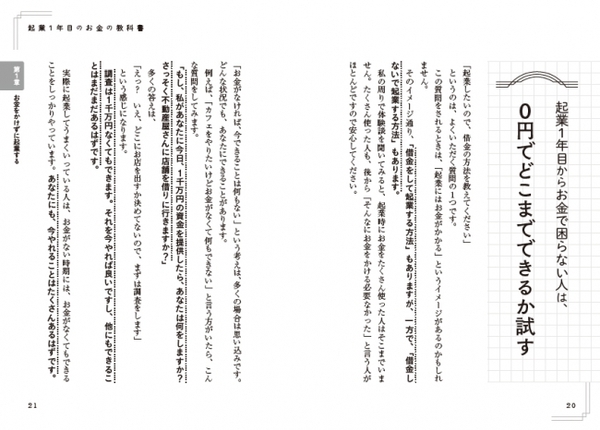 起業1年目からお金で困らない人は、
0円でどこまでできるか試す
「起業したいので、借金の方法を教えてください」
というのは、よくいただく質問の1つです。
この質問をされるときは、「起業にはお金がかかる」というイメージがあるのかもしれ
ません。
そのイメージ通り、「借金をして起業する方法」もありますが、一方で、「借金し
ないで起業する方法」もあります。
私の周りで体験談を聞いてみると、起業時にお金をたくさん使った人はそこまでいま
せん。たくさん使った人も、後から「そんなにお金をかける必要なかった」と言う人が
ほとんどですので安心してください。
20
起業1年目のお金の教科書
第1章
お金をかけずに起業する
「お金がなければ、今できることは何もない」という考えは、多くの場合は思い込みです。
どんな状況でも、あなたにできることがあります。
例えば、「カフェをやりたいけどお金がなくて何もできない」と言う方がいたら、こん
な質問をしてみます。
「もし、私があなたに今日、1千万円の資金を提供したら、あなたは何をしますか?
さっそく不動産屋さんに店舗を借りに行きますか?」
多くの答えは、
「えっ? いえ、どこにお店を出すか決めてないので、まずは調査をします」
という感じになります。
調査は1千万円なくてもできます。それを今やれば良いですし、他にもできるこ
とはまだまだあるはずです。
実際に起業してうまくいっている人は、お金がない時期には、お金がなくてもできる
ことをしっかりやっています。あなたにも、今やれることはたくさんあるはずです。
21